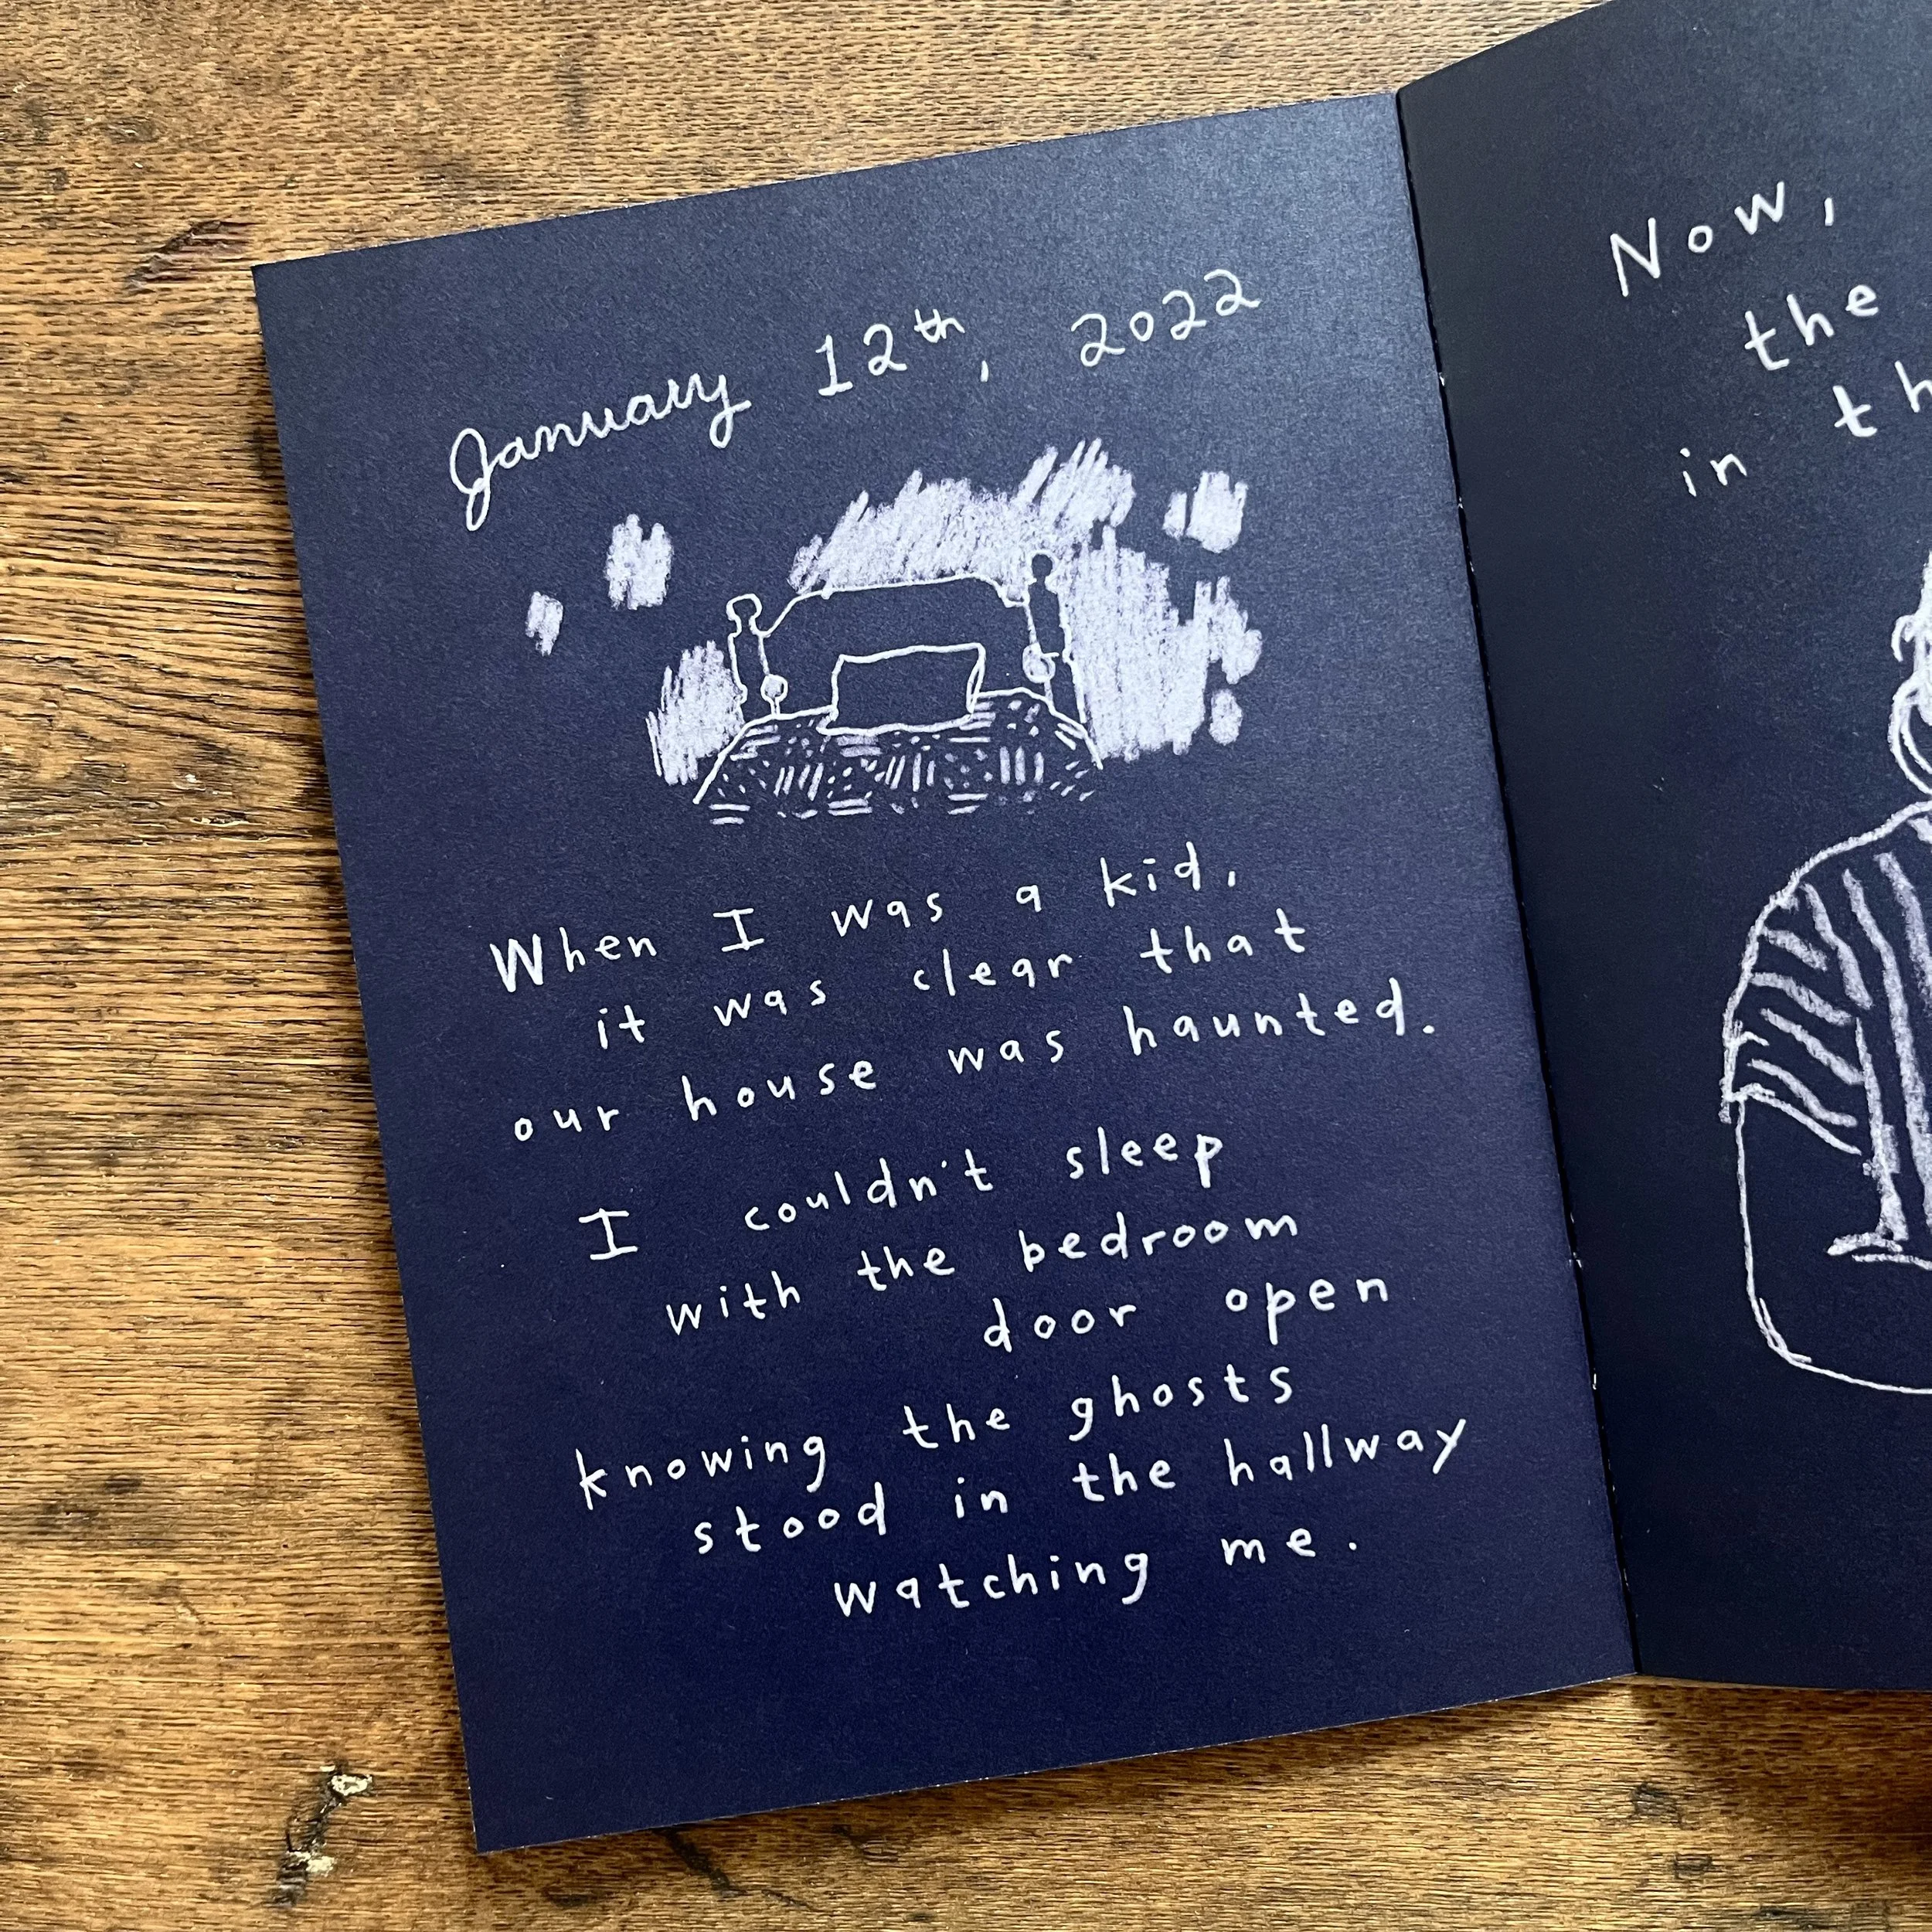 January 12th, 2022
When I was a kid,
it was clear that
our house was haunted.
I couldn't sleep
with the bedroom
door open
knowing the ghosts
stood in the hallway
watching me.
Now,
the
in